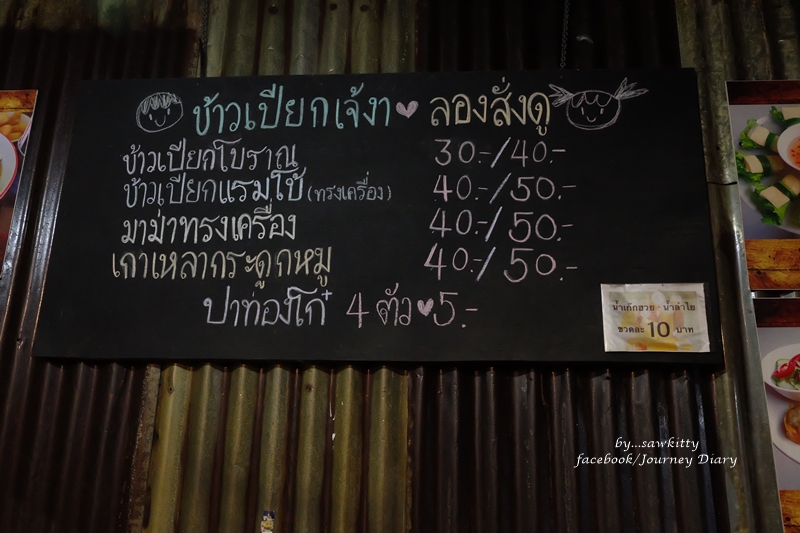 ข้าวเปียกเจ้งา ♥ ลองสั่งดู
ข้าวเปียกโบราณ 30.-/40.-
ข้าวเปียกแรมโบ้ (ทรงเครื่อง) 40.-/50.-
มาม่าทรงเครื่อง 40.-/50.-
เกาเหลากระดูกหมู 40.-/50.-
ปาท่องโก๋ 4 ตัว ♥ 5.-
น้ำเก๊กฮวย - น้ำลำไย
ขวดละ 10 บาท
by...sawkitty
facebook/Journey Diary